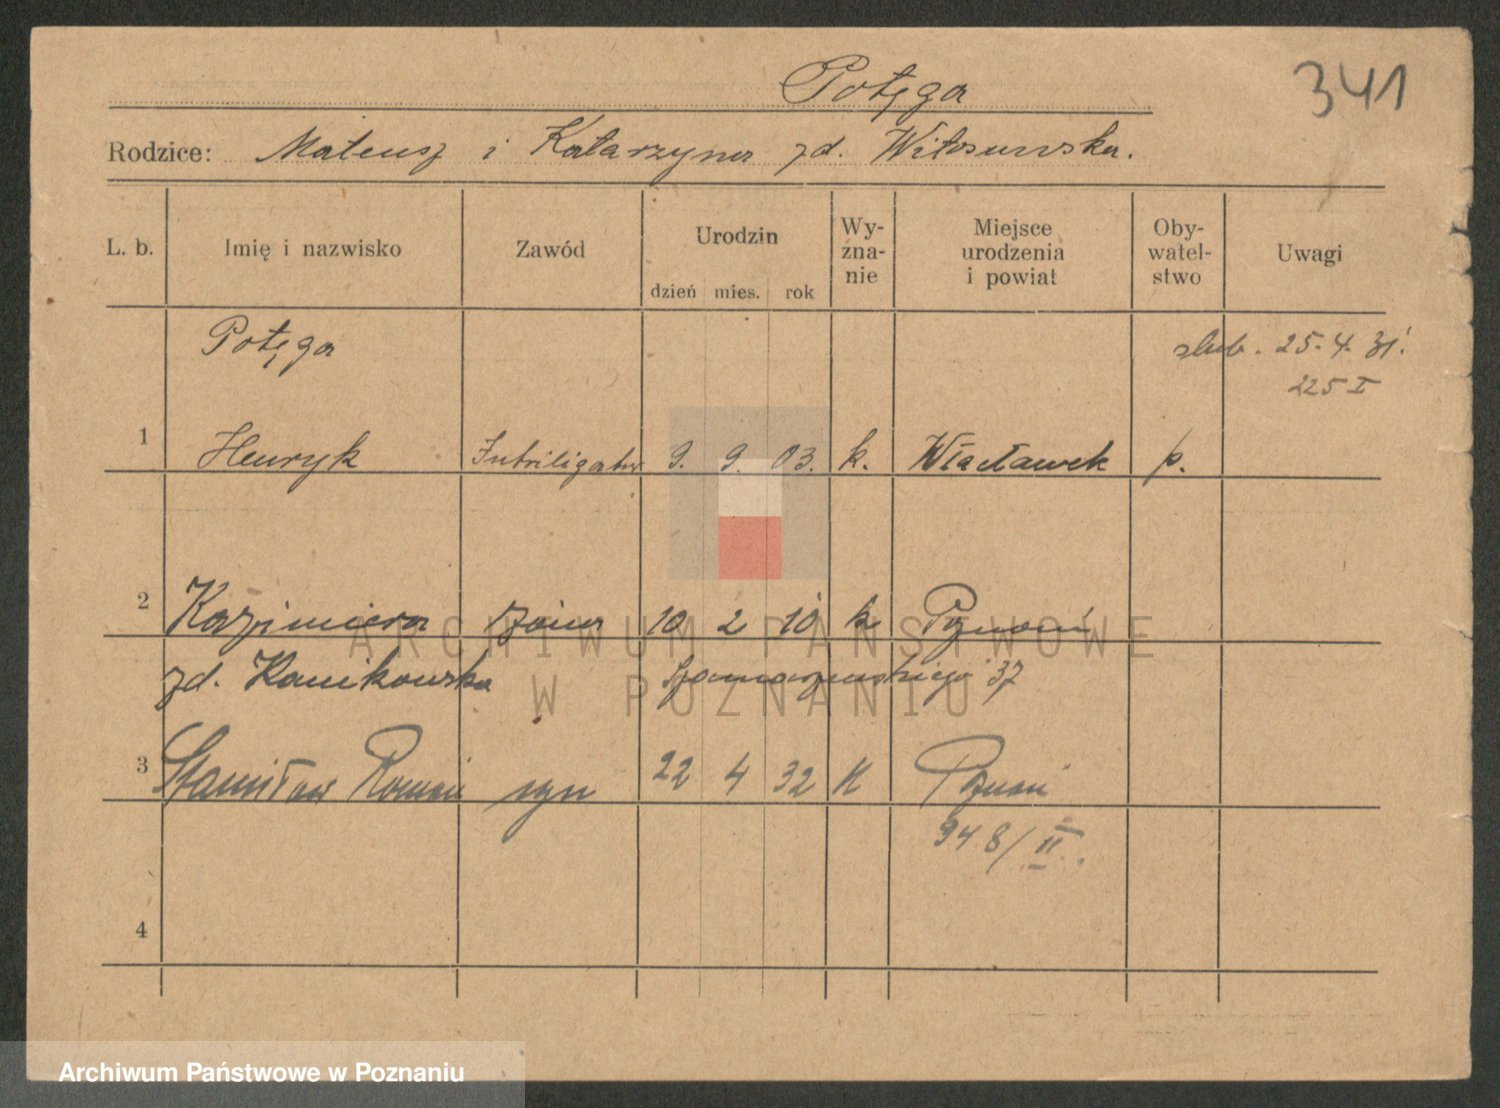 Potęga
341
Rodzice: Mateusz i Katarzyna zd. Witosowska.
L. b. Imię i nazwisko Zawód Urodzin dzień mies. rok Wy-zna-nie Miejsce urodzenia i powiat Oby-watel-stwo Uwagi
Potęga ślub. 25.4.31.
225 I
1 Henryk Introligator 9. 9. 03. k. Włocławek p.
2 Kazimiera żona 10 2 10 k Poznań
zd. Kanikowska Szamarzewskiego 37
3 Stanisław Roman syn 22 4 32 K Poznań
948/II.
4
ARCHIWUM PAŃSTWOWE
W POZNANIU
Archiwum Państwowe w Poznaniu